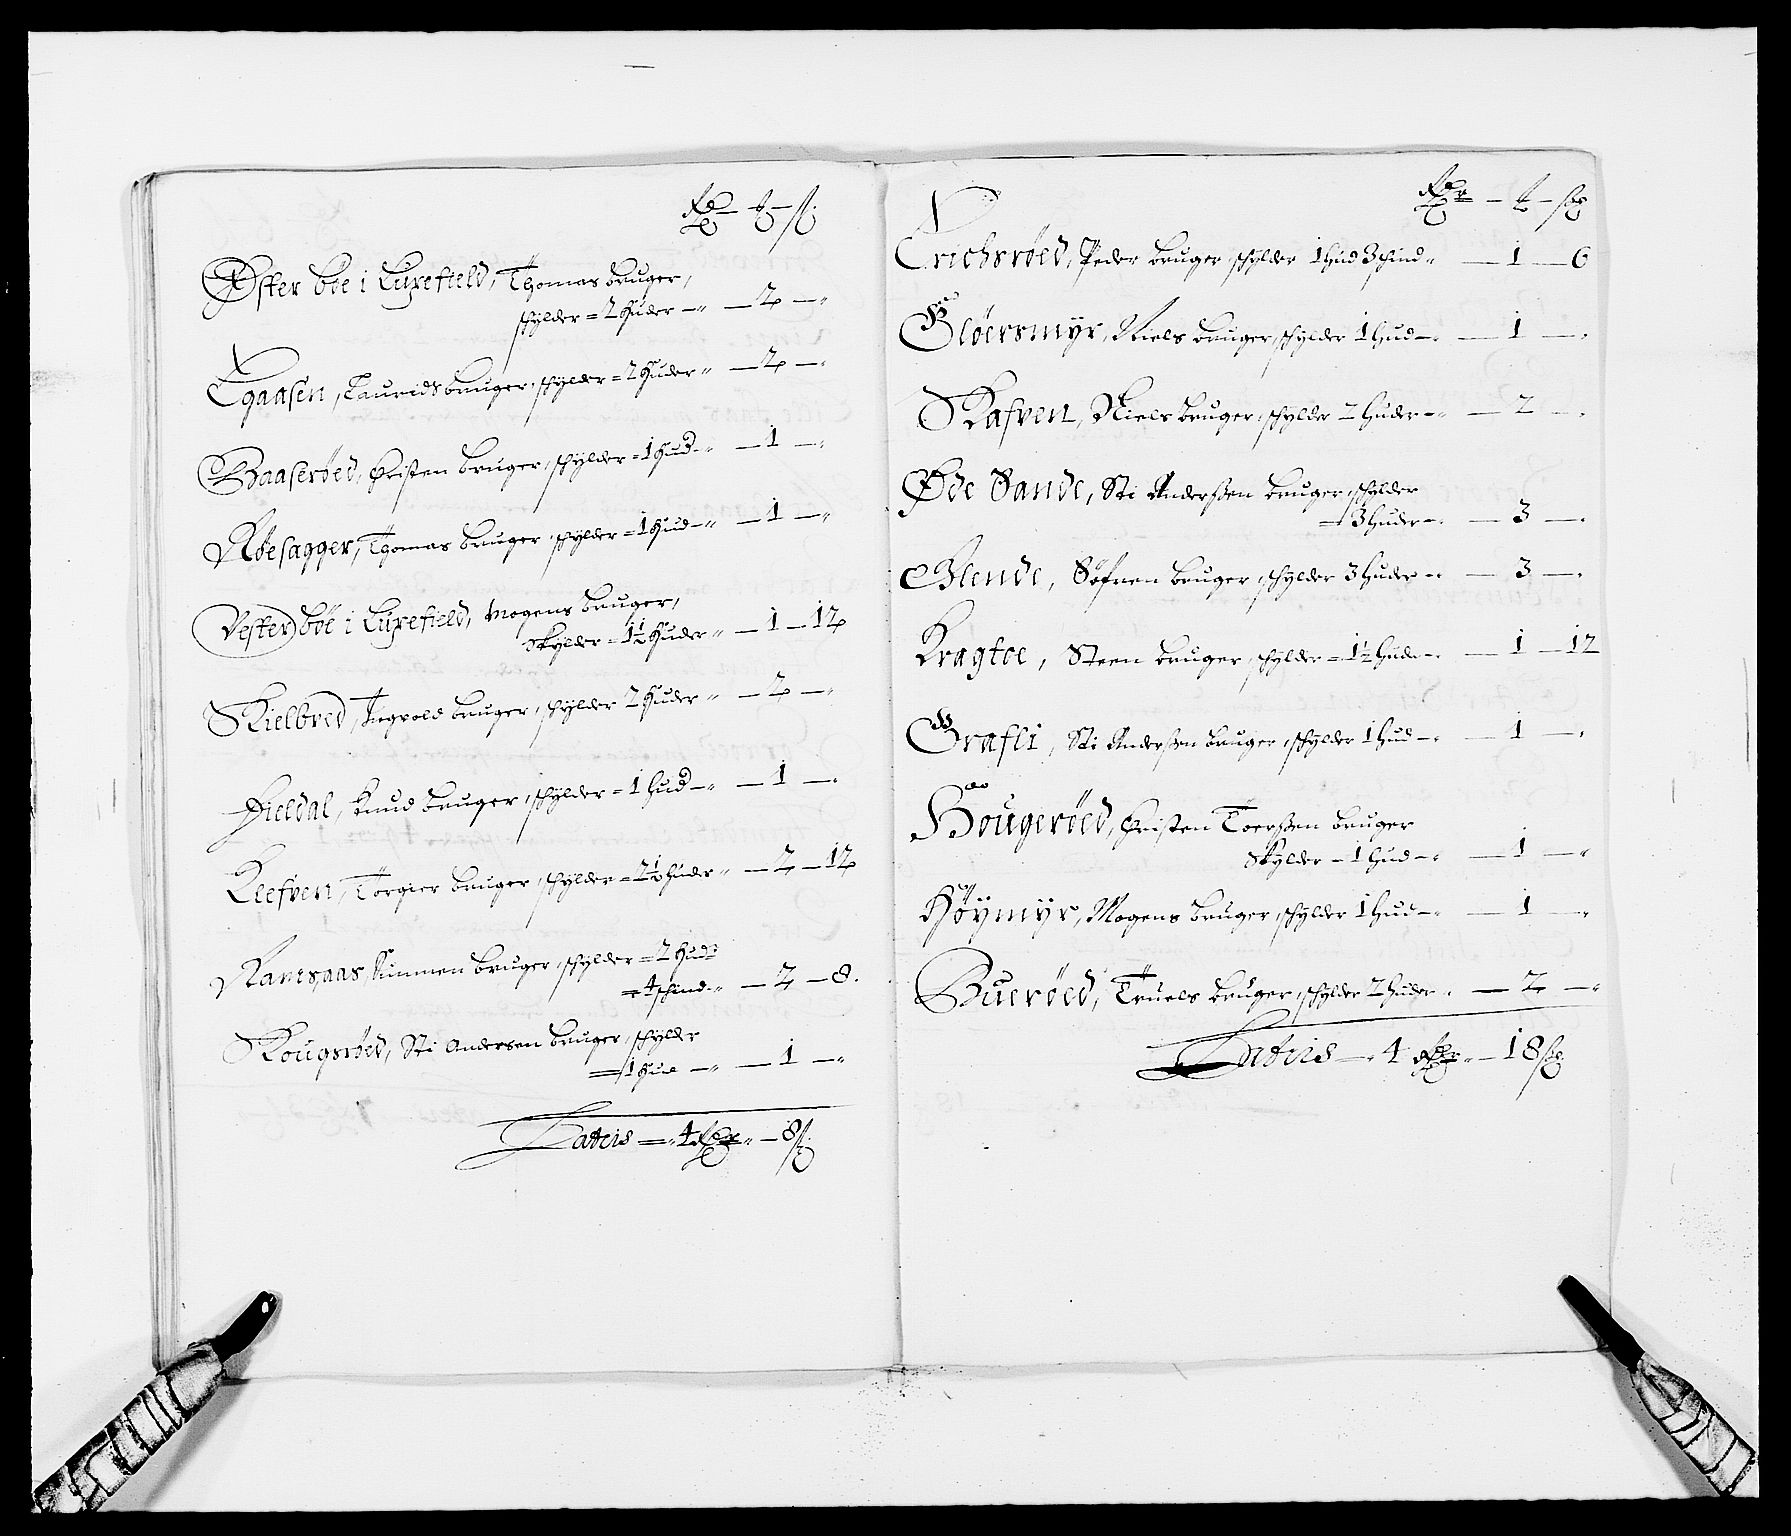 Rdr — ƶ — ſz
Øster böe i Luxefield, Thomas bruger,
schylder = 2 Huder —〃 — 2 —〃
Egaasen, Laurids bruger, schylder = 2 Huder 〃 — 2 —〃
Baaseröed, Christen bruger, schylder = 1 Hud —〃 — 1 —〃
Röesagger, Thomas bruger, schylder = 1 Hud —〃 — 1 —〃
Vester böe i Luxefield, Mogens bruger,
Skylder = 1½ Huder 〃 — 1 — 12
Skielbred, Ingvold bruger, schylder 2 Huder 〃 — 2 —〃
Fieldal, Knud bruger, schylder = 1 hud —〃 — 1 —〃
Klefven, Torgier bruger, schylder = 2½ huder 〃 — 2 — 12
Ramsaas, Gunmen bruger, schylder = 2 Hud:
= 4 schind —〃 — 2 — 8.
Kougsröed, Sti Andersen bruger, schylder
= 1 Hud —〃 — 1 —〃
Lateris = 〃 4 Rdr 〃 — 8 ſz
Rdr — ƶ — ſz
Erichsröed, Peder bruger, schylder 1 hud 3 schind 〃 — 1 — 6
Glöersmyr, Niels bruger, schylder 1 hud —〃 — 1 —〃
Skafven, Niels bruger, schylder 2 huder —〃 — 2 —〃
Øde Sande, Sti Anderßen bruger, schylder
= 3 huder —〃 — 3 —〃
Blende, Söfren bruger, schylder 3 huder —〃 — 3 —〃
Kragtoe, Steen bruger, schylder = 1½ hude —〃 — 1 — 12
Grafli, Sti Anderßen bruger, schylder 1 hud —〃 — 1 —〃
Hougeröed, Christen Toerßen bruger
Skylder — 1 hud —〃 — 1 —〃
Höymyr, Mogens bruger, schylder 1 hud —〃 — 1 —〃
Bueröed, Truels bruger, schylder 2 huder 〃 — 2 —〃
Lateris —〃 4 Rdr 〃 — 18 ſz